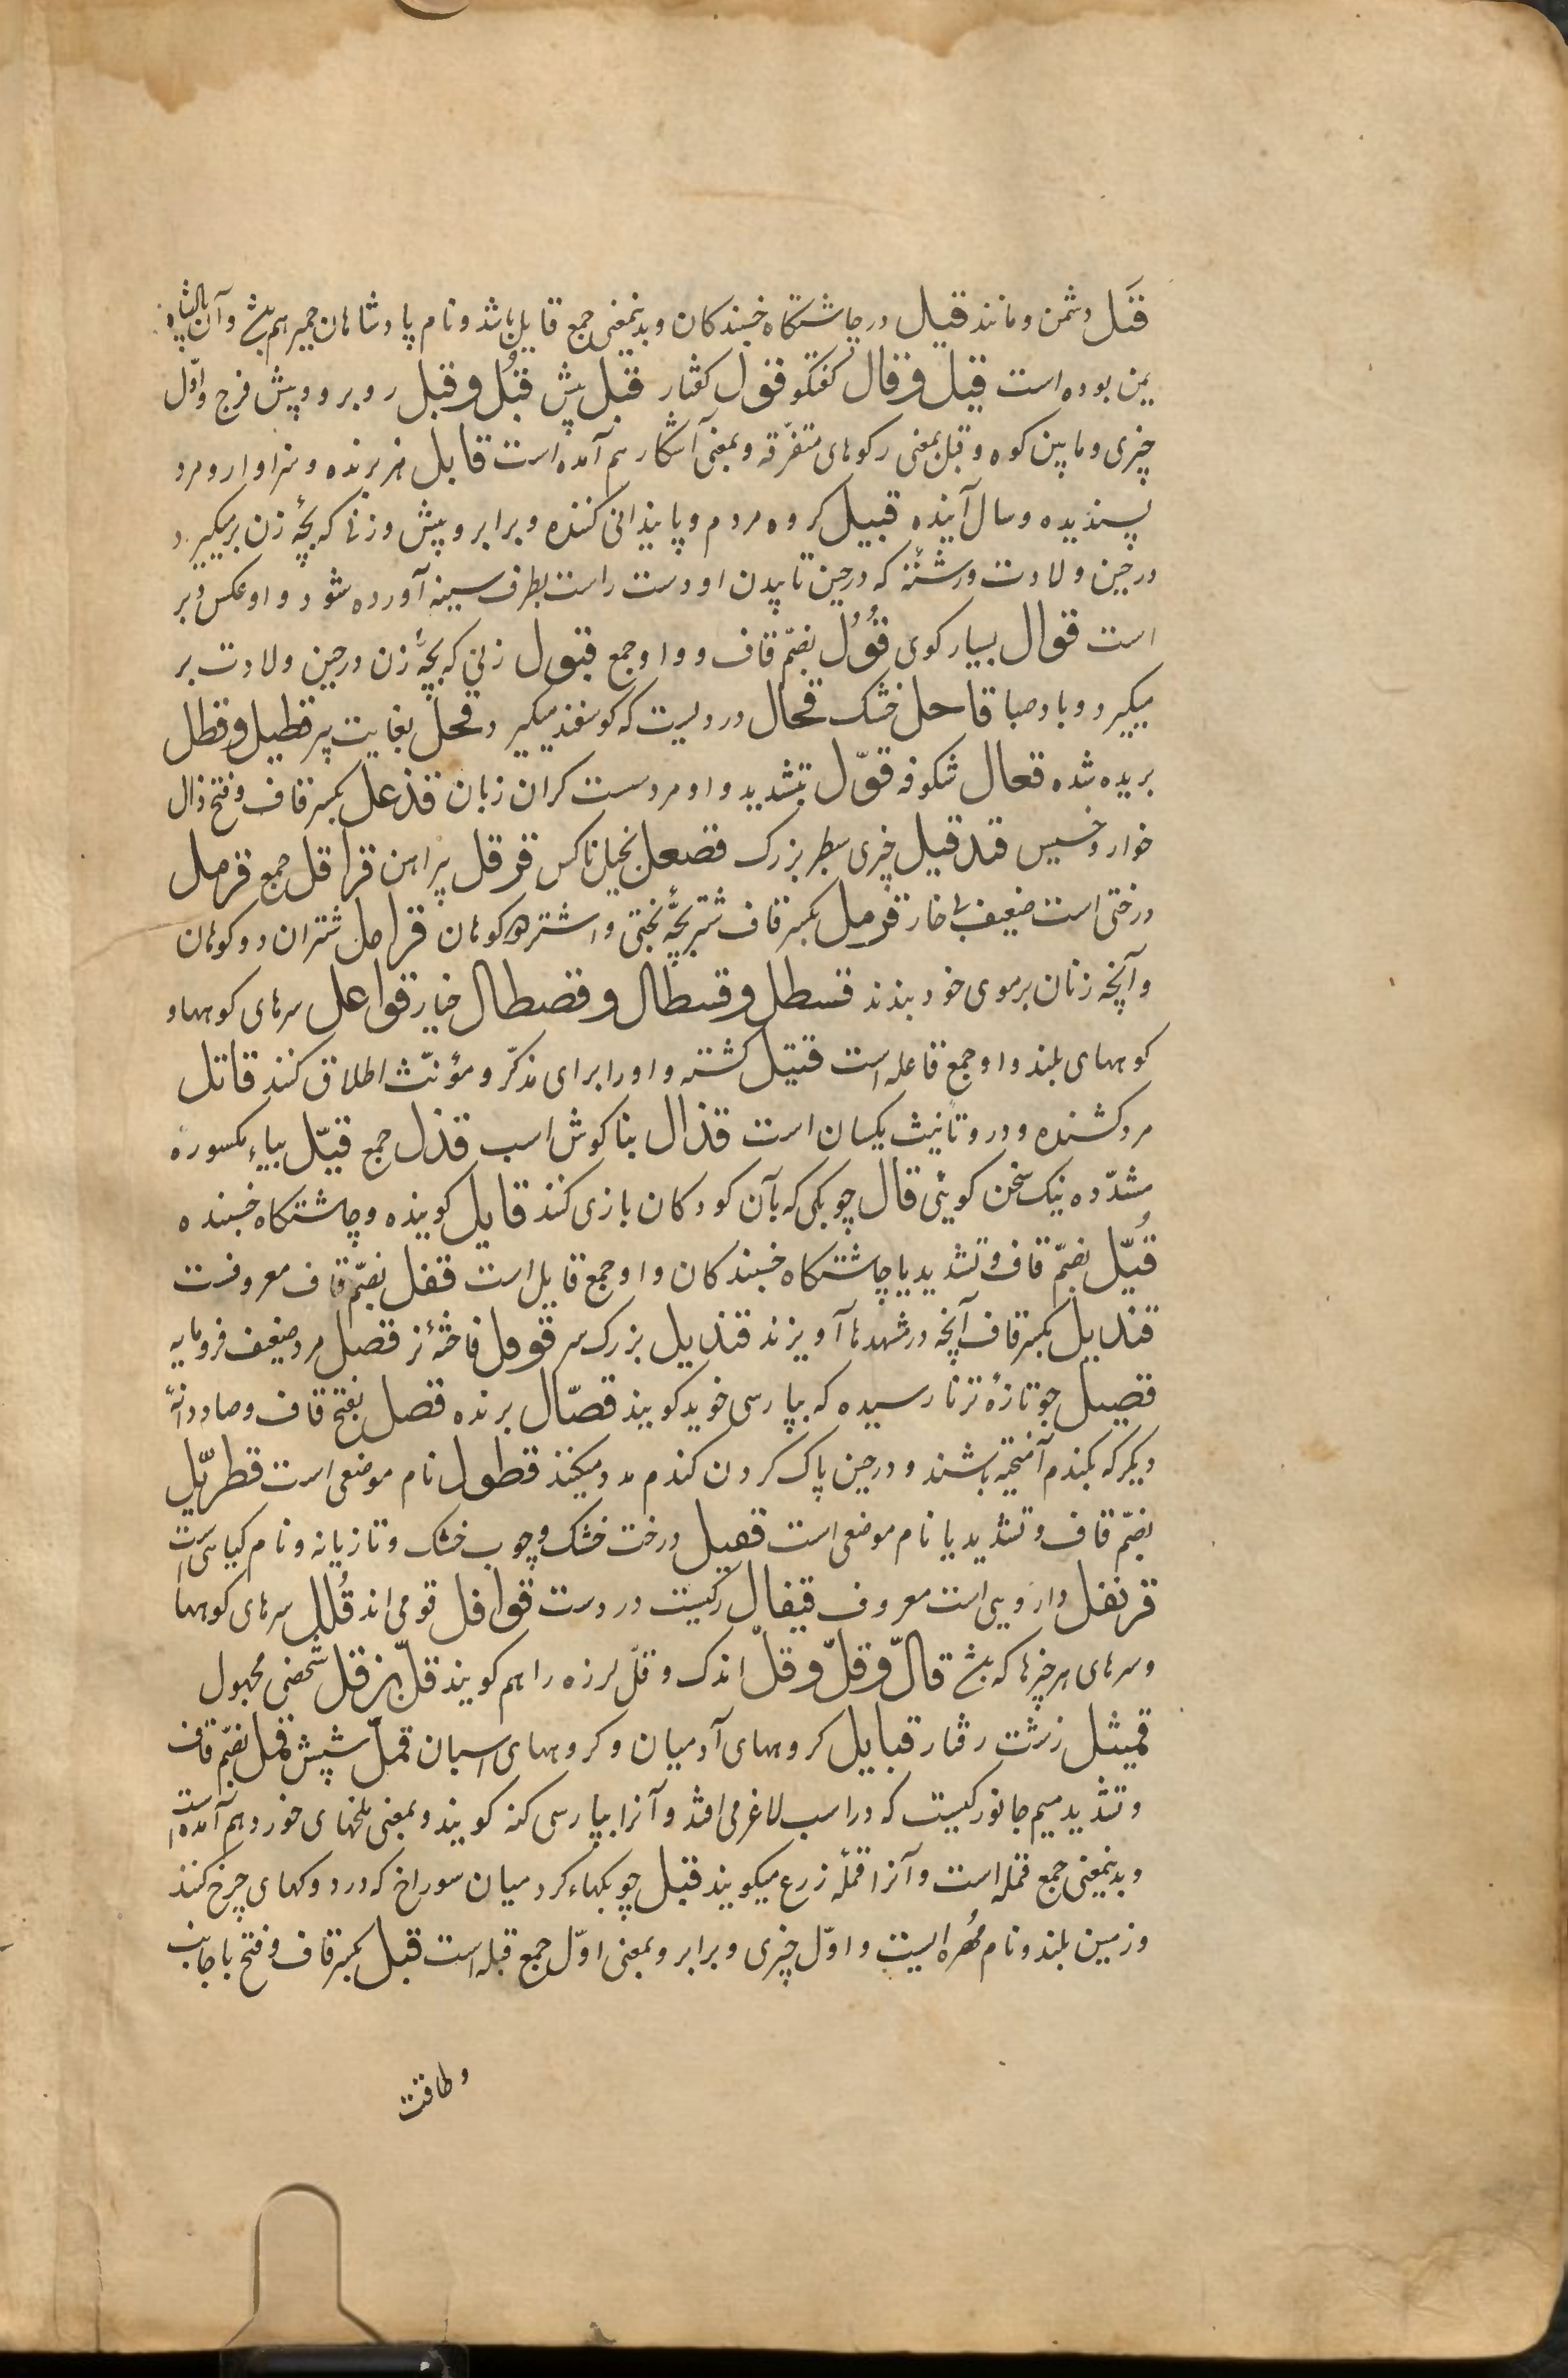 قتل دشمن و مانند قیل در چاشتگاه خسبندکان و بدینمعنی جمع قایل باشد و نام پادشاهان حمیر هم بشد و آن پادشاه
یمن بوده است قیل و قال کفتکو قول کفتار قبل پیش قبُل و قبل روبرو و پیش فرج و اوّل
چیزی و مابین کوه و قبل بمعنی رکوهای متفرّقه و بمعنی آشکار هم آمده است قابل هنرنده و سزاوار و مرد
پسندیده و سال آینده قبیل کروه مردم و پایندانی کننده و برابر و پیش و زنی که بچهٔ زن بر میکیرد
در حین ولادت و رشتهٔ که در حین تاپیدن او دست راست بطرف سینه آورده شود و او عکس دبر
است قوال بسیار کوی قؤُل بضمّ قاف و واو جمع قبول زنی که بچهٔ زن در حین ولادت بر
میکیرد و باد صبا قاحل خشک قحال دردیست که کوسفند میکیرد قحل بغایت پیر قطیل و قطل
بریده شده قعال شکوفه قوّل بتشدید واو مرد ست کران زبان قذعل بکسر قاف و فتح ذال
خوار و خسیس قندقیل چیزی سطبر بزرک قصعل بخیل ناکس قرقل پیراهن قراقل جمع قرمل
درختی است ضعیف بی خار قرمل بکسر قاف شتر بچّهٔ بختی و اشتر دو کوهان قرامل شتران دو کوهان
و آنچه زنان بر موی خود بندند قسطل و قسطال و قصطال خبار قواعل سرهای کوهها و
کوههای بلند و او جمع قاعله است قتیل کشته و او را برای مذکّر و مؤنّث اطلاق کنند قاتل
مرد کشنده و در و تانیث یکسان است قذال بناکوش اسب قذل جمع قیّل بیاء مکسوره
مشدّده نیک سخن کویئی قال چوبکی که بآن کودکان بازی کنند قایل کوینده و چاشتکاه خسبنده
قُیّل بضمّ قاف و تشدید یا چاشتکاه خسبندکان و او جمع قایل است قفل بضمّ قاف معروفست
قندیل بکسر قاف آنچه در مشهدها آویزند قندیل بزرک سر قوقل فاختهٔ نر قصل مرد ضعیف فرومایه
قصیل جو تازهٔ تر نارسیده که بپارسی خوید کویند قصّال برنده قصل بفتح قاف و صاد دانهٔ
دیکر که بکندم آمیخته باشند و در حین پاک کردن کندم مد و میکنند قطول نام موضعی است قطربّل
بضمّ قاف و تشدید با نام موضعی است قفیل درخت خشک و چوب خشک و تازیانه و نام کیاهی است
قرنفل دارویی است معروف قیفال رکیست در دست قوافل قومی اند قُلل سرهای کوهها
و سرهای هر چیزها که بشد قالّ و قلّ و قلّ اندک و قلّ لرزه را هم کویند قلّ بزقل شخصی مجهول
قمیثل زشت رفتار قبایل کروههای آدمیان و کروههای اسبان قمل شپش قمّل بضمّ قاف
و تشدید میم جانورکیست که در اسب لاغر می افتد و آنرا بپارسی کنه کویند و بمعنی ملخهای خورد هم آمده است
و بدینمعنی جمع قمله است و آنرا قملهٔ زرع میکویند قبل چوبکهاء کرد میان سوراخ که در دوکهای چرخ کنند
و زمین بلند و نام مُهره ایست و اوّل چیزی و برابر و بمعنی اوّل جمع قبله است قبل بکسر قاف و فتح با جانب
و طاقت